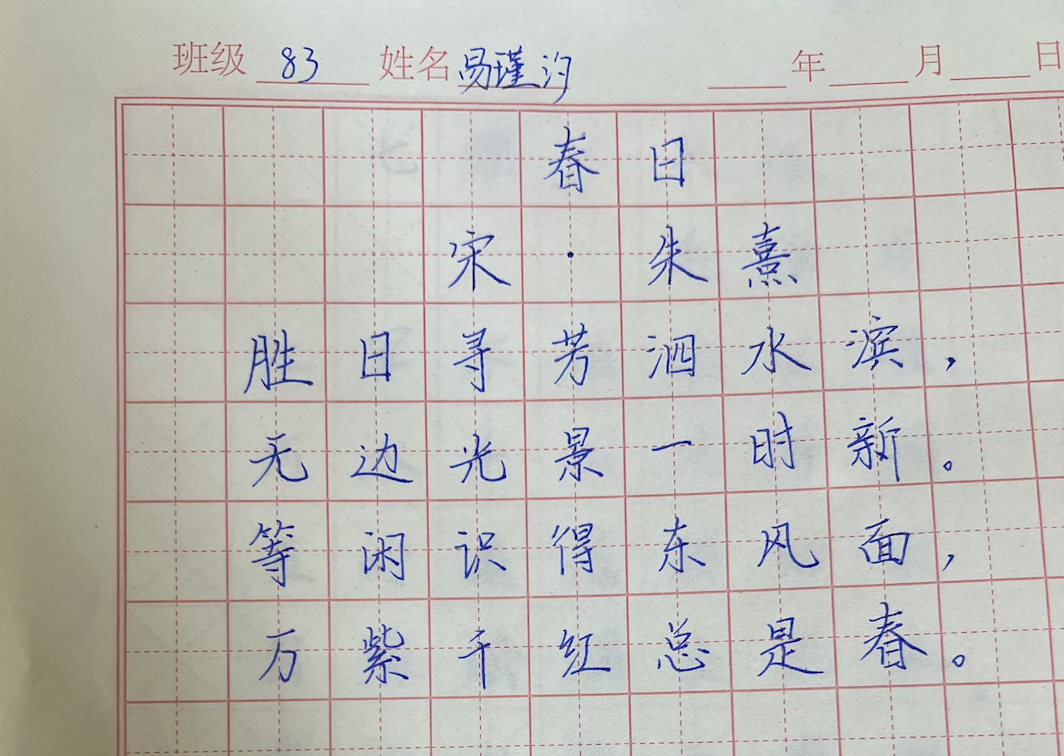 班级 83 姓名 易瑾汐 年 月 日
春日
宋·朱熹
胜日寻芳泗水滨，
无边光景一时新。
等闲识得东风面，
万紫千红总是春。